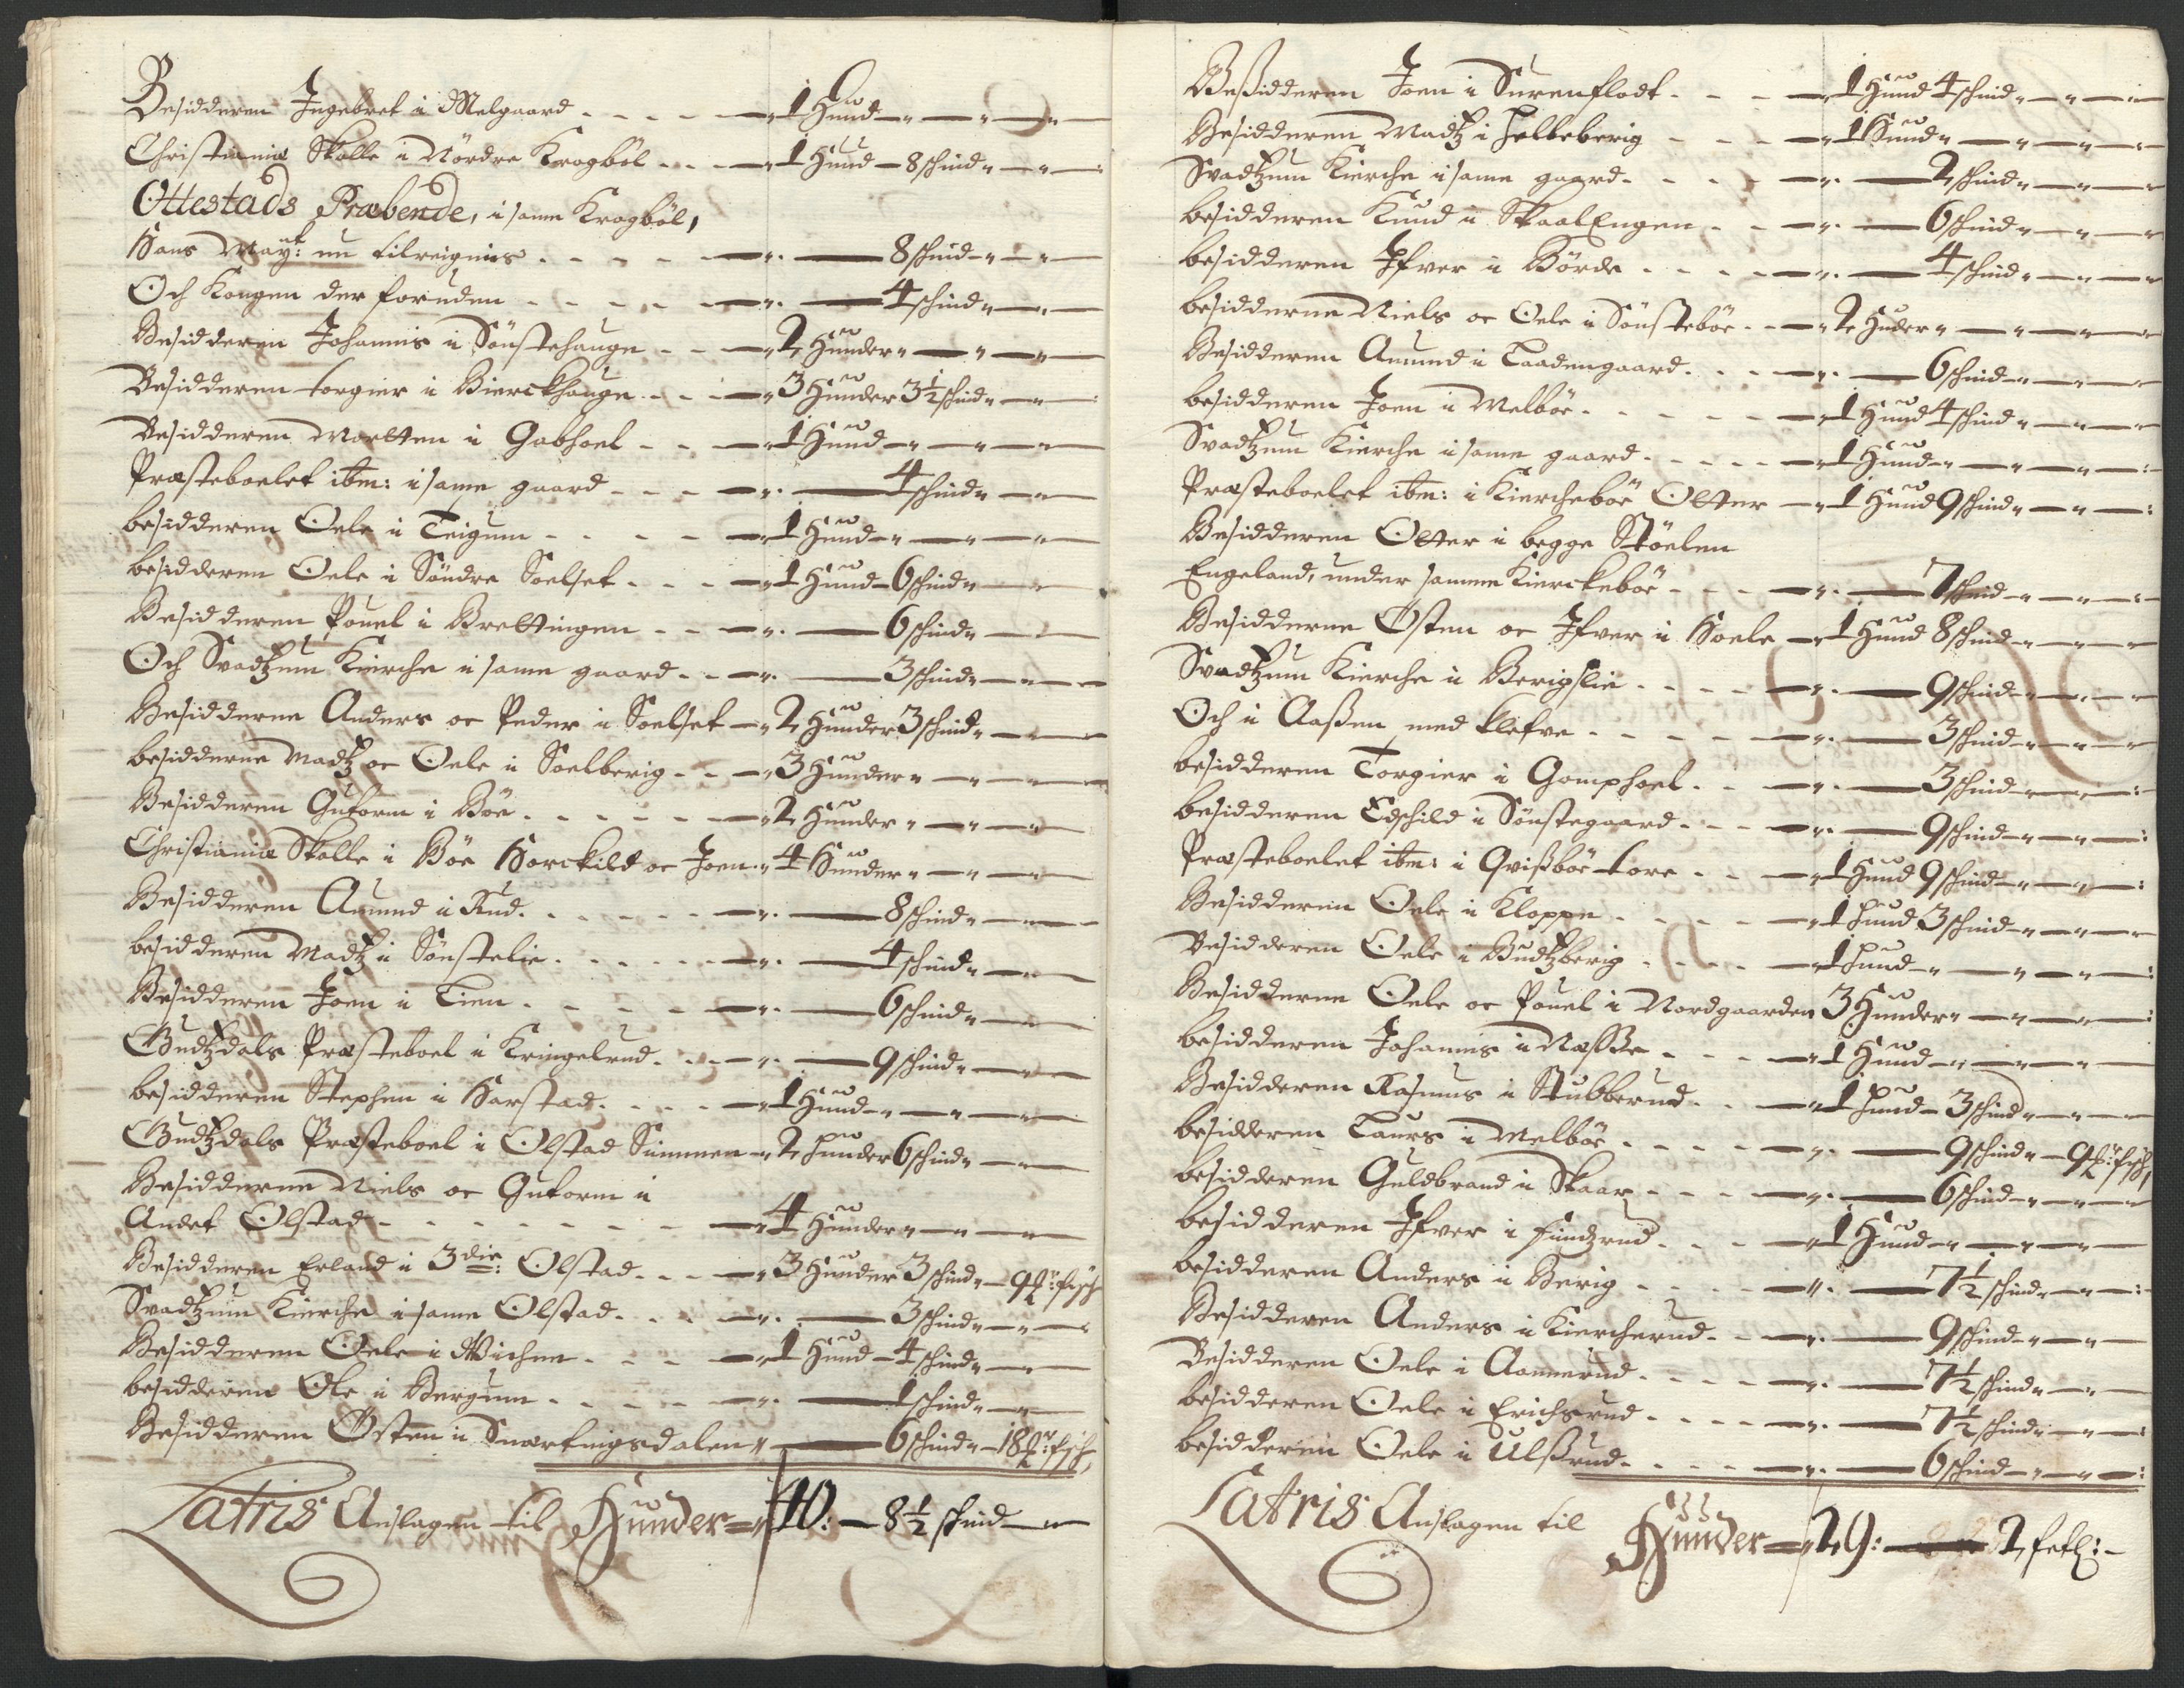 Besidderen Ingebret i Melgaard - - - - 1 Huud
Christaniæ Skolle i Nördre Krogböl - - - 1 Huud - 8 schind
Ottestads Præbende, i same Krogböl,
Hans Mayt: nu tilreignis - - - - 8 schind
Och Kongen der foruden - - - - 4 schind
Besidderen Johannis i Sönstehauge - - 2 Huuder
Besidderen torgier i Bierckhauge - - 3 Huuder 3½ schind
Besidderen Morthen i Gabhoel - - 1 Huud
Præsteboelet ibm: i same gaard - - - 4 schind
besidderen Oele i Teigum - - - - 1 Huud
besidderen Oele i Söndre Soelset - - - 1 Huud - 6 schind
Besidderen Pouel i Brettingen - - - 6 schind
Och Svadtzum Kierche i same gaard - - 3 schind
Besidderne Anders oc Peder i Soelset - 2 Huuder 3 schind
besidderne Madtz oc Oele i Soelberig - - 3 Huuder
Besidderen Gutorm i Böe - - - - - 2 Huuder
Christianiæ Skolle i Böe Horckild oc Joen - 4 Huuder
Besidderen Amund i Rud - - - - - 8 schind
besidderen Madtz i Sönstelie - - - - 4 schind
Besidderen Joen i Lien - - - - - 6 schind
Gudtzdals Præsteboel i Kringelrud - - - 9 schind
besidderen Stephen i Harstad - - - - 1 Huud
Gudtzdals Præsteboel i Olstad Simmen - 2 huuder 6 schind
Besidderne Niels oc Gutorm i
Andet Olstad - - - - - - - 4 Huuder
Besidderen Erland i 3die: Olstad - - - 3 Huuder 3 schind - 9 fisch
Svadtzum Kierche i same Olstad - - - 3 schind
Besidderen Oele i Wichen - - - - 1 Huud - 4 schind
besidderen Ole i Bergum - - - - - 1 schind
Besidderen Östen i Snartingsdalen - 6 schind - 18 fisch,
Latris Anslagen til Huuder = 40: - 8½ schind
Beßidderen Joen i Surenflodt - - - 1 Huud 4 schind
Besidderen Madtz i Helleberig - - - 1 Huud
Svadtzum Kierche i same gaard - - - 2 schind
besidderen Knud i SkaalEngen - - 6 schind
besidderen Ifver i Börde - - - - 4 schind
besidderne Niels oc Oele i Sönsteböe - - 2 Huder
Besidderen Amund i Laadengaard - - - 6 schind
besidderen Joen i Melböe - - - - - 1 Huud 4 schind
Svadtzum Kierche i same gaard - - - - 1 Huud
Præsteboelet ibm: i Kiercheböe Otter - 1 Huud 9 schind
Besidderen Otter i begge Stöelen
Engeland, under samme Kierckeböe - - - 7 schind
Besidderne Östen oc Ifver i Hoele - 1 Huud 8 schind
Svadtzum Kierche i Berigslie - - - - 9 schind
Och i Aaßen med Klefve - - - - - 3 schind
besidderen Torgier i Gomphoel - - 3 schind
besidderen Edschild i Sönstegaard - - - 9 schind
Præsteboelet ibm: i Qvißböe tore - - - 1 Huud 9 schind
Besidderen Oele i Kloppe - - - - 1 huud 3 schind
Besidderen Oele i Budtzberig - - - - 1 huud
Besidderne Oele oc Pouel i Nordgaarden 3 Huuder
besidderen Johannis i Næsße - - - 1 Huud
Besidderen Rasmus i Stubberud - - - 1 huud - 3 schind
besidderen Laurs i Melböe - - - - 9 schind - 9 fisch,
besidderen Guldbrand i Skaar - - - 6 schind
besidderen Ifver i Findzrud - - - 1 Huud
besidderen Anders i Berig - - - - 7½ schind
Besidderen Anders i Kiercherud - - 9 schind
Besidderen Oele i Aannerud - - - - 7½ schind
besidderen Oele i Erichsrud - - - - 7½ schind
besidderen Oele i Ulßrud - - - - 6 schind
Latris Anslagen til Huuder = 29: - 2 fetl: